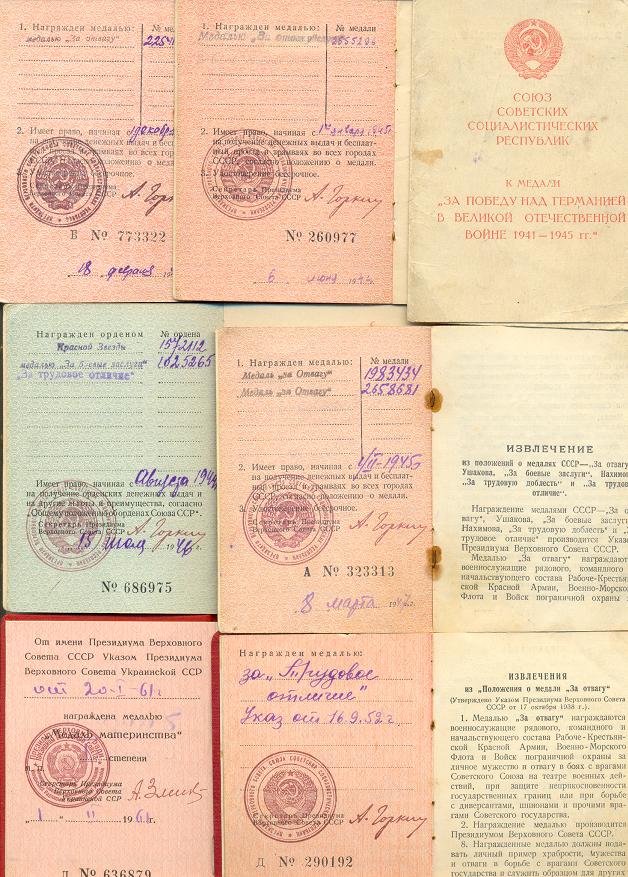 1. Награжден медалью:
№ медали
медалью „За отвагу"
2. Имеет право, начиная с
на получение денежных выдач и бесплат-
№ 773322
18 февраля
1. Награжден медалью:
№ медали
2. Имеет право, начиная с
на получение денежных выдач и бесплат-
ный проезд в трамваях во всех городах
СССР, согласно положению о медали.
3. Удостоверение бессрочное.
Секретарь Президиума
Верховного Совета СССР
А. Горкин
№ 260977
6 июня
СОЮЗ
СОВЕТСКИХ
СОЦИАЛИСТИЧЕСКИХ
РЕСПУБЛИК
К МЕДАЛИ
„ЗА ПОБЕДУ НАД ГЕРМАНИЕЙ
В ВЕЛИКОЙ ОТЕЧЕСТВЕННОЙ
ВОЙНЕ 1941—1945 гг."
Награжден орденом
№ ордена
Красной Звезды
1572112
медалью „За боевые заслуги"
1025265
"За трудовое отличие"
Имеет право, начиная с Августа
на получение орденских денежных выдач и
на другие льготы и преимущества, согласно
„Общему положению об орденах Союза ССР".
Секретарь Президиума
Верховного Совета СССР
А. Горкин
15 июля 1946 г.
№ 686975
1. Награжден медалью:
№ медали
Медаль „за Отвагу"
1983434
Медаль „за Отвагу"
2658681
2. Имеет право, начиная с
на получение денежных выдач и бесплат-
ный проезд в трамваях во всех городах
СССР, согласно положению о медали.
3. Удостоверение бессрочное.
Секретарь Президиума
Верховного Совета СССР
А. Горкин
А № 323313
8 марта 1947 г.
ИЗВЛЕЧЕНИЕ
из положений о медалях СССР—„За отвагу
Ушакова, „За боевые заслуги", Нахимо
„За трудовую доблесть" и „За трудо
отличие".
Награждение медалями СССР—„За о
вагу", Ушакова, „За боевые заслуги
Нахимова, „За трудовую доблесть" и „
трудовое отличие" производится Указо
Президиума Верховного Совета СССР.
Медалью „За отвагу" награждают
военнослужащие рядового, командного
начальствующего состава Рабоче-Крестья
ской Красной Армии, Военно-Морско
Флота и Войск пограничной охраны
От имени Президиума Верховного
Совета СССР Указом Президиума
Верховного Совета Украинской ССР
от 20-I-61г.
награждена медалью
„Медаль материнства"
степени
Секретарь Президиума
Верховного Совета
Украинской ССР
1 II 1961 г.
№ 636879
Награжден медалью:
за „Трудовое
отличие"
Указ от 16.9.52 г.
Секретарь Президиума
Верховного Совета СССР
А. Горкин
Д № 290192
ИЗВЛЕЧЕНИЯ
из „Положения о медали „За отвагу"
(Утверждено Указом Президиума Верховного Совета
СССР от 17 октября 1938 г.).
1. Медалью „За отвагу" награждаются
военнослужащие рядового, командного и
начальствующего состава Рабоче-Крестьян-
ской Красной Армии, Военно-Морского
Флота и Войск пограничной охраны за
личное мужество и отвагу в боях с врагами
Советского Союза на театре военных дей-
ствий, при защите неприкосновенности
государственных границ или при борьбе
с диверсантами, шпионами и прочими вра-
гами Советского государства.
2. Награждение медалью производится
Президиумом Верховного Совета СССР.
8. Награжденные медалью должны пода-
вать личный пример храбрости, Мужества
и отваги в борьбе с врагами Советского
государства и служить образцом для других